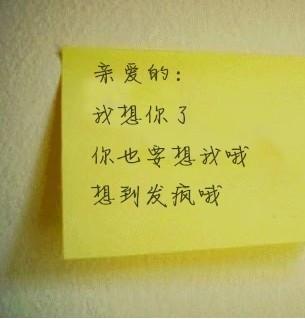 亲爱的：
我想你了
你也要想我哦
想到发疯哦